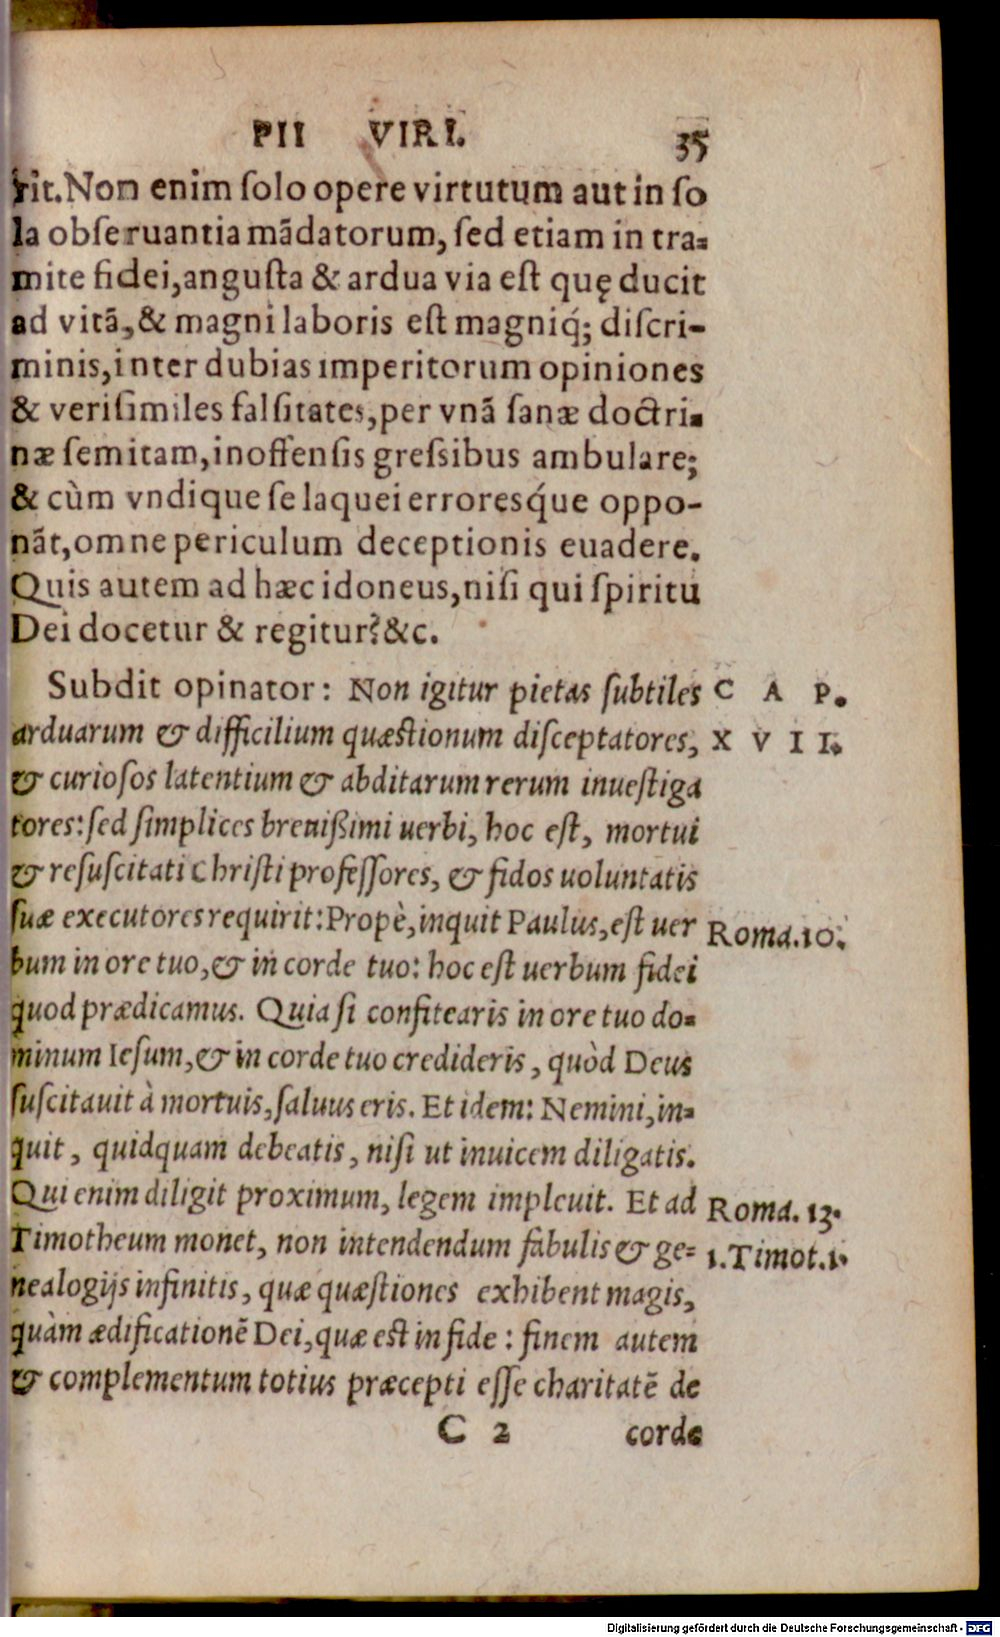 PII VIRI. 35
rit. Non enim ſolo opere virtutum aut in ſo
la obſeruantia mādatorum, ſed etiam in tra-
mite fidei, anguſta & ardua via eſt quę ducit
ad vitā, & magni laboris eſt magniq́; diſcri-
minis, inter dubias imperitorum opiniones
& veriſimiles falſitates, per vnā ſanæ doctri-
næ ſemitam, inoffenſis greſsibus ambulare;
& cùm vndique ſe laquei erroresq́ue oppo-
nāt, omne periculum deceptionis euadere.
Quis autem ad hæc idoneus, niſi qui ſpiritu
Dei docetur & regitur? &c.
Subdit opinator: Non igitur pietas ſubtiles CAP.
arduarum & difficilium quæſtionum diſceptatores, XVII.
& curioſos latentium & abditarum rerum inueſtiga
tores: ſed ſimplices breuißimi uerbi, hoc eſt, mortui
& reſuſcitati Chriſti profeſſores, & fidos uoluntatis
ſuæ executores requirit: Propè, inquit Paulus, eſt uer Roma.10.
bum in ore tuo, & in corde tuo: hoc eſt uerbum fidei
quod prædicamus. Quia ſi confitearis in ore tuo do-
minum Ieſum, & in corde tuo credideris, quòd Deus
ſuſcitauit à mortuis, ſaluus eris. Et idem: Nemini, in-
quit, quidquam debeatis, niſi ut inuicem diligatis.
Qui enim diligit proximum, legem impleuit. Et ad Roma. 13.
Timotheum monet, non intendendum fabulis & ge- 1.Timot.1.
nealogijs infinitis, quæ quæſtiones exhibent magis,
quàm ædificationē Dei, quæ eſt in fide: finem autem
& complementum totius præcepti eſſe charitatē de
C 2 corde
Digitalisierung gefördert durch die Deutsche Forschungsgemeinschaft - DFG